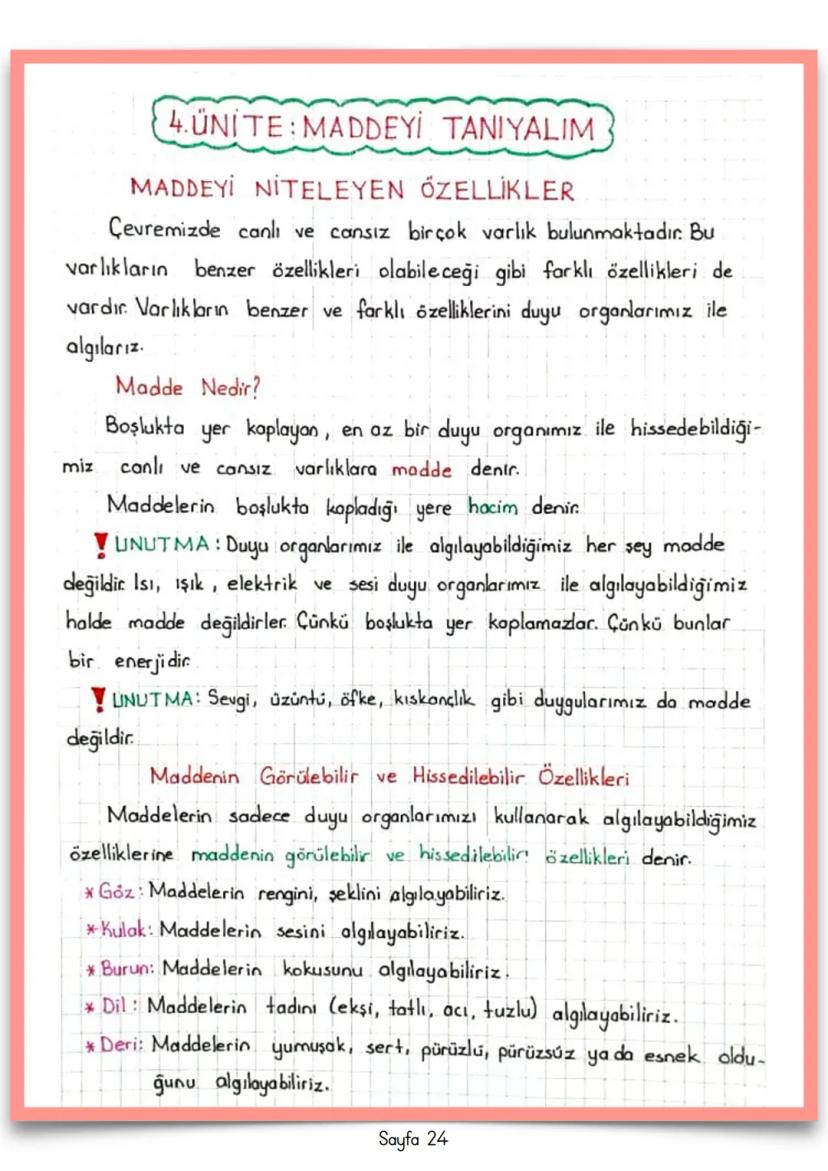 4.ÜNİTE: MADDEYİ TANIYALIM
MADDEYİ NİTELEYEN ÖZELLİKLER
Çevremizde canlı ve cansız birçok varlık bulunmaktadır. Bu
varlıkların benzer özellikleri olabileceği gibi farklı özellikleri de
vardır. Varlıkların benzer ve farklı özelliklerini duyu organlarımız ile
algılarız.
Madde Nedir?
Boşlukta yer kaplayan, en az bir duyu organımız ile hissedebildiği-
miz canlı ve cansız varlıklara madde denir.
Maddelerin boşlukta kapladığı yere hacim denir.
! UNUTMA: Duyu organlarımız ile algılayabildiğimiz her şey madde
değildir. Isı, ışık, elektrik ve sesi duyu organlarımız ile algılayabildiğimiz
halde madde değildirler. Çünkü boşlukta yer kaplamazlar. Çünkü bunlar
bir enerjidir.
! UNUTMA: Sevgi, üzüntü, öfke, kıskançlık gibi duygularımız da madde
değildir.
Maddenin Görülebilir ve Hissedilebilir Özellikleri
Maddelerin sadece duyu organlarımızı kullanarak algılayabildiğimiz
özelliklerine maddenin görülebilir ve hissedilebilir özellikleri denir.
* Göz: Maddelerin rengini, şeklini algılayabiliriz.
* Kulak: Maddelerin sesini algılayabiliriz.
* Burun: Maddelerin kokusunu algılayabiliriz.
* Dil: Maddelerin tadını (ekşi, tatlı, acı, tuzlu) algılayabiliriz.
* Deri: Maddelerin yumuşak, sert, pürüzlü, pürüzsüz ya da esnek oldu-
ğunu algılayabiliriz.
Sayfa 24